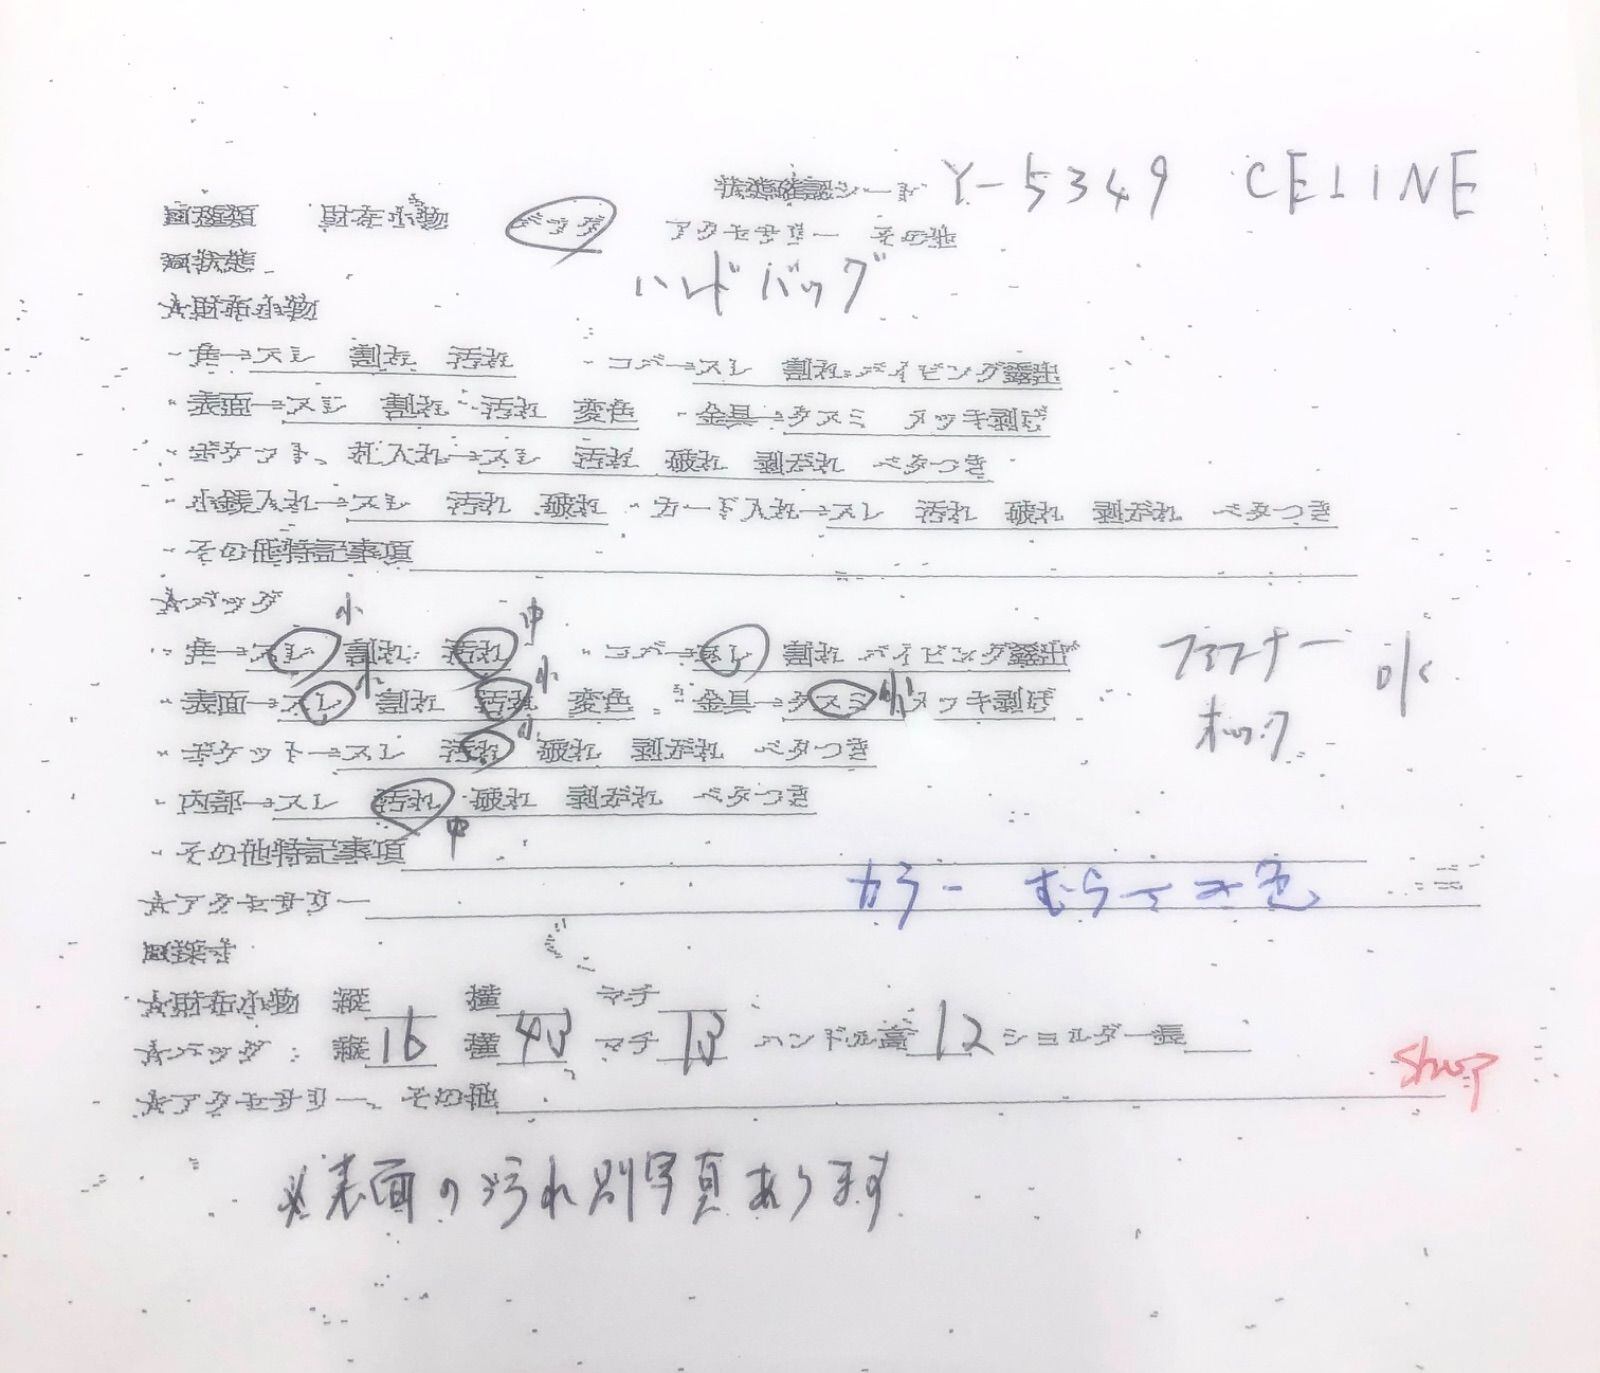 状態確認シート Y-5349 CELINE
■種類 財布小物 バッグ アクセサリー その他
ハンドバッグ
■状態
★財布小物
・角→スレ 割れ 汚れ ・コバ→スレ 割れ パイピング露出
・表面→スレ 割れ 汚れ 変色 ・金具→クスミ メッキ剥げ
・ポケット、札入れ→スレ 汚れ 破れ 剥がれ ベタつき
・小銭入れ→スレ 汚れ 破れ ・カード入れ→スレ 汚れ 破れ 剥がれ ベタつき
・その他特記事項
★バッグ
小 中
・角→スレ 割れ 汚れ ・コバ→スレ 割れ パイピング露出 ファスナー
・表面→スレ 小 割れ 汚れ 小 変色 ・金具→クスミ 小 メッキ剥げ ホック ok
・ポケット→スレ 汚れ 小 破れ 剥がれ ベタつき
・内部→スレ 汚れ 破れ 剥がれ ベタつき
中
・その他特記事項
カラー むらさき色
★アクセサリー
■採寸
★財布小物 縦 横 マチ
★バッグ 縦16 横43 マチ13 ハンドル高12 ショルダー長
★アクセサリー、その他
※表面の汚れ別写真あります